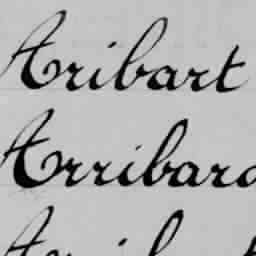 Aribart
Arribard